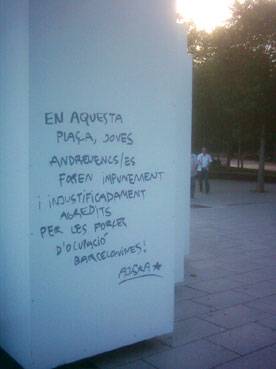 EN AQUESTA
PLAÇA, JOVES
ANDREUENCS/ES
FOREN IMPUNEMENT
I INJUSTIFICADAMENT
AGREDITS
PER LES FORCES
D'OCUPACIÓ
BARCELONINES!